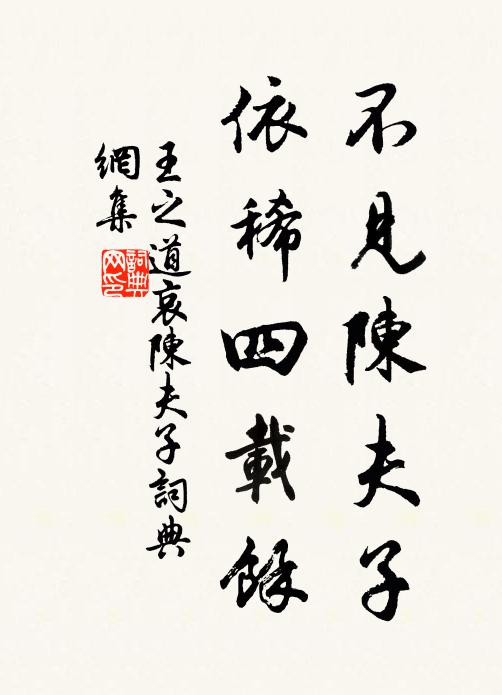 不見陳夫子
依稀四載餘
王之道哀陳夫子詞典
網集
詞典
网印